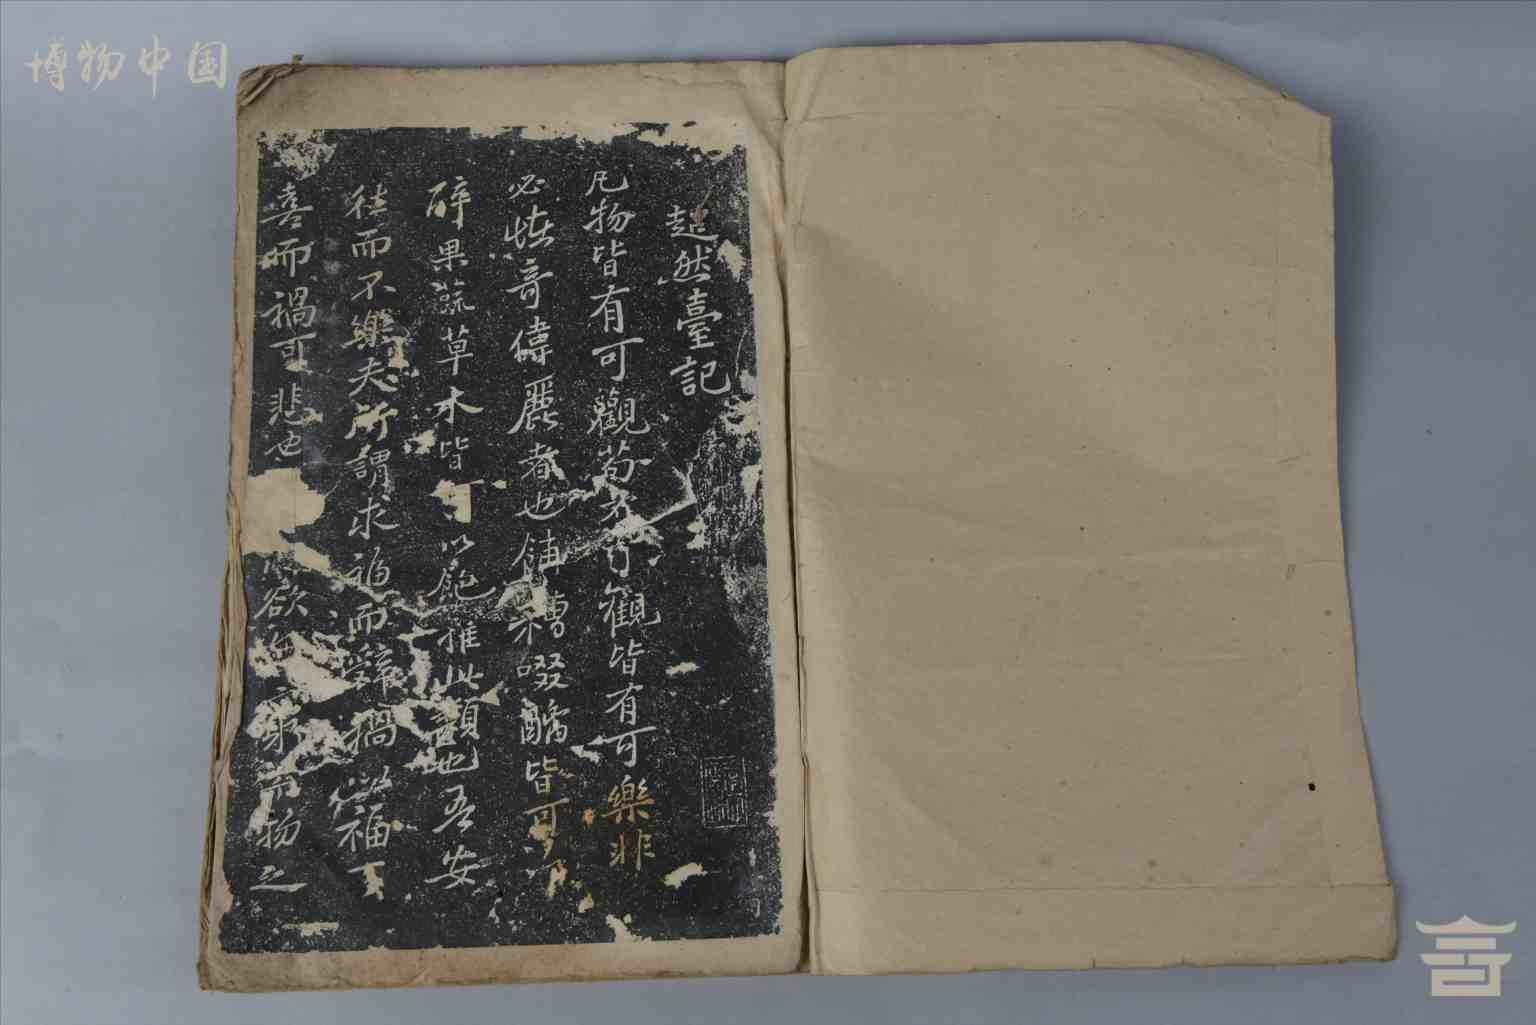 博物中国
超然臺記
凡物皆有可觀苟有可觀皆有可樂非
必恠奇偉麗者也餔糟啜醨皆可
醉果蔬草木皆可以飽推此類也吾安
往而不樂夫所謂求福而辭禍以福可
喜而禍可悲也 欲無窮而物之